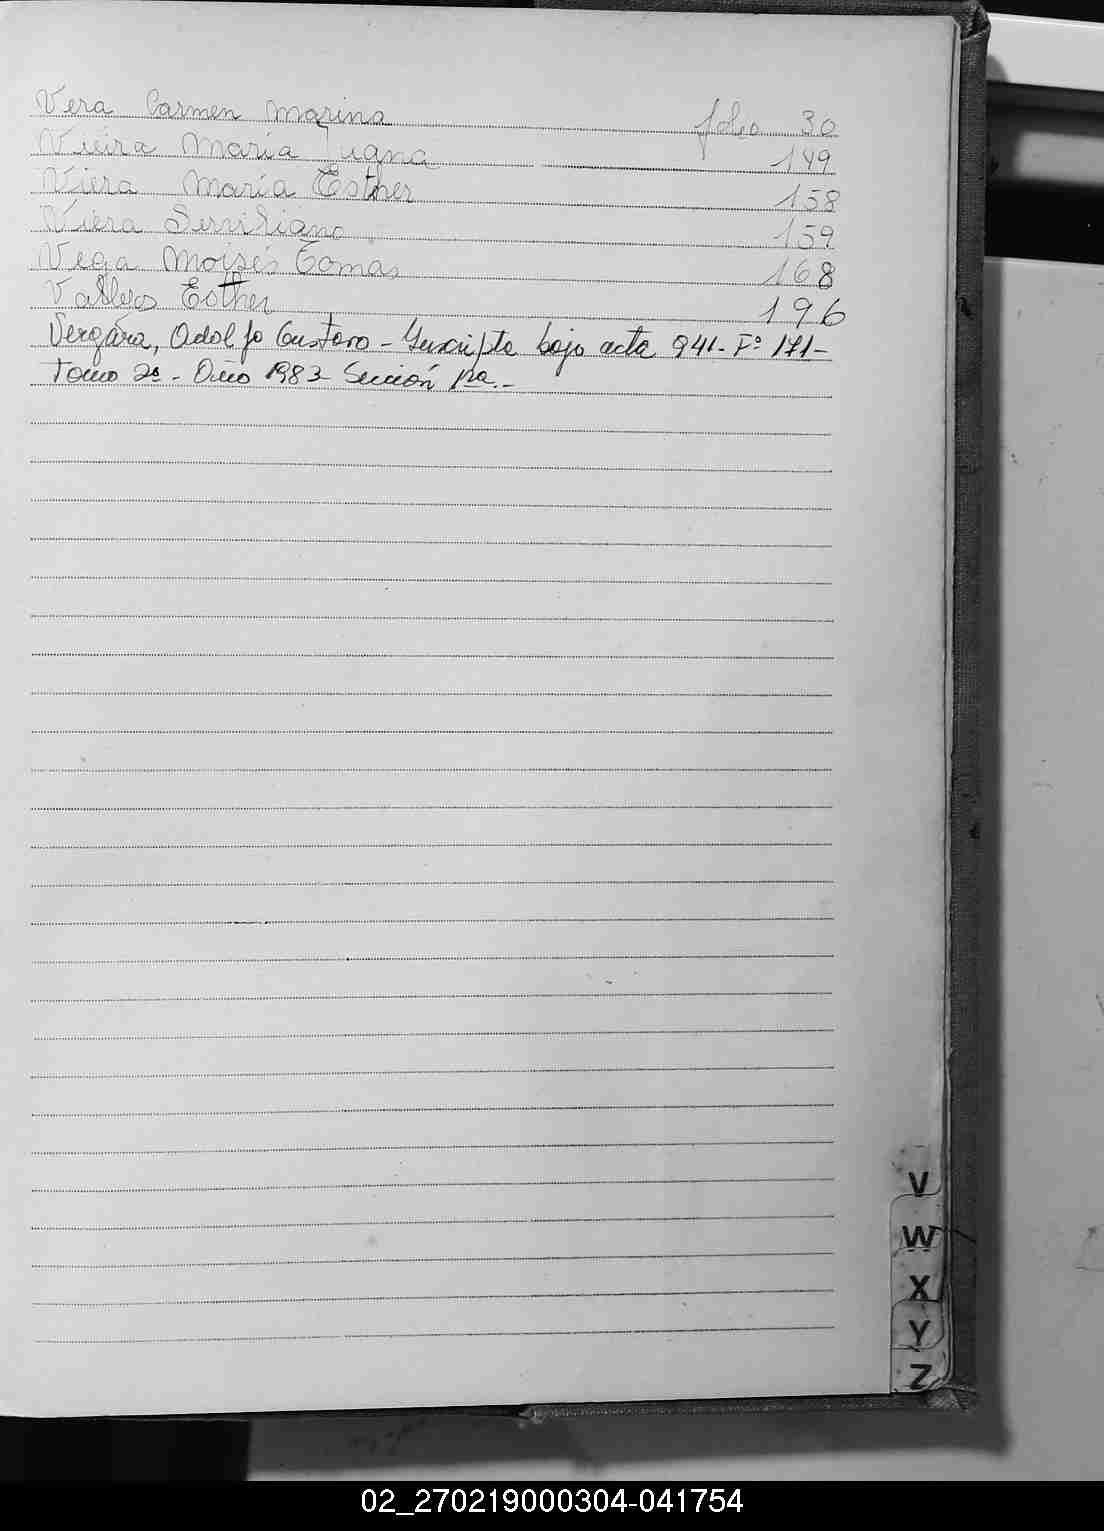 Vera Carmen Marina folio 30
Vieira Maria Juana 149
Viera Maria Esther 158
Viera Serviliano 159
Vega Moisés Tomas 168
Vallejos Esther 196
Vergara, Adolfo Gustavo - Inscripto bajo acta 941- Fº 171-
Tomo 2º - Año 1983- Sección 1ra.-
V
W
X
Y
Z
02_270219000304-041754